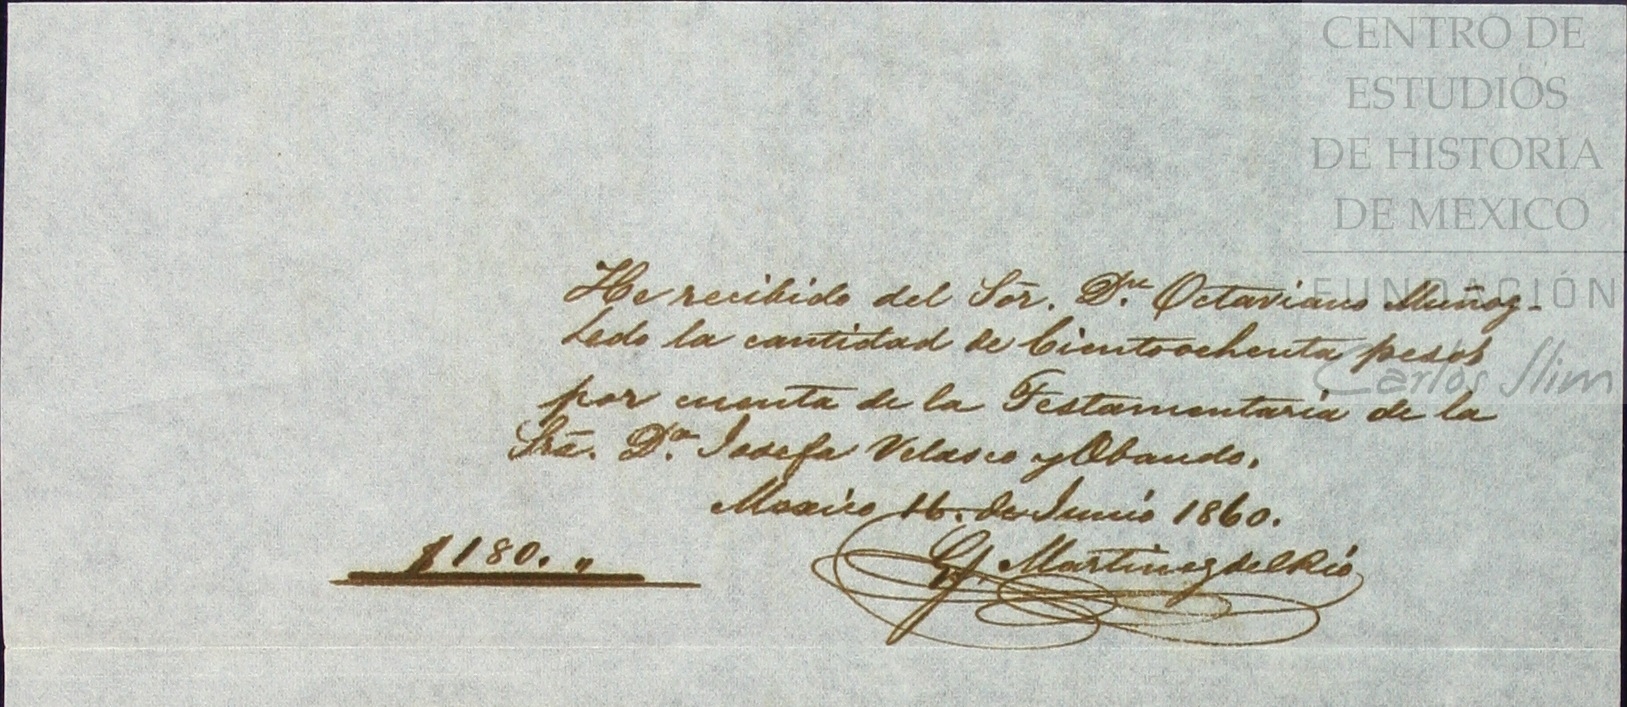 CENTRO DE
ESTUDIOS
DE HISTORIA
DE MEXICO
FUNDACIÓN
Carlos Slim
He recibido del Sōr. Dn. Octaviano Muñoz-
Ledo la cantidad de Cientoochenta pesos
por cuenta de la Testamentaria de la
Srā. Da. Josefa Velasco y Obando.
Mexico 16. de Junio 1860.
$180. "
G. Martinez del Rio